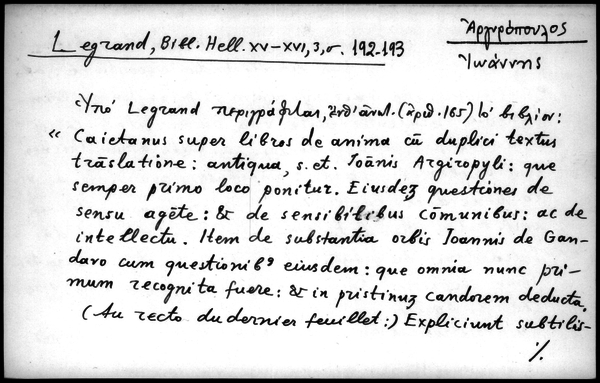 Legrand, Bibl. Hell. XV–XVI, 3, σ. 192-193
Ἀργυρόπουλος
Ἰωάννης
Ὑπό Legrand περιγράφεται, (ἀριθ. 165) τό βιβλίον:
“ Caietanus super libros de anima cū duplici textus
trāslatione: antiqua, s. et. Ioānis Argiropyli: que
semper primo loco ponitur. Eiusdeʒ questiones de
sensu agēte: & de sensibilibus cōmunibus: ac de
intellectu. Item de substantia orbis Joannis de Gan-
davo cum questionibꝰ eiusdem: que omnia nunc pri-
mum recognita fuere: & in pristinuʒ candorem deducta.
(Au recto du dernier feuillet:) Expliciunt subtilis-
·/.